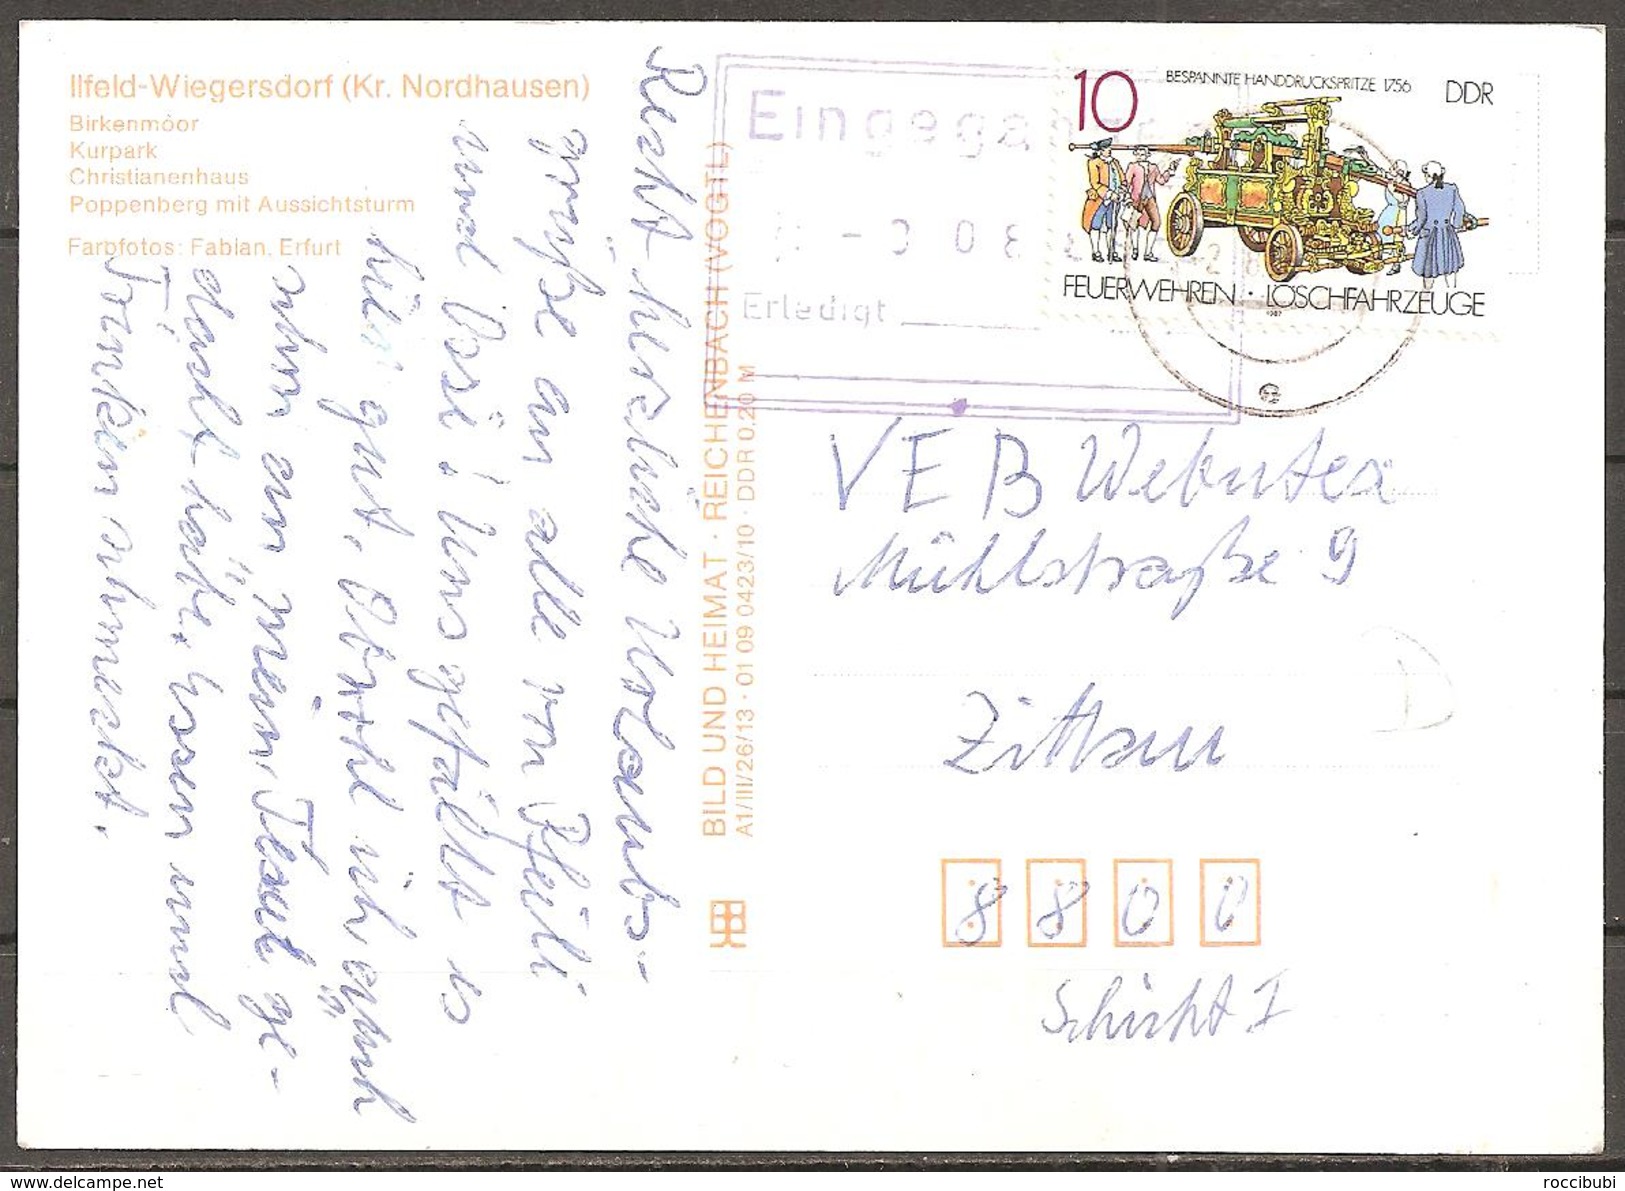 Ilfeld-Wiegersdorf (Kr. Nordhausen)
Birkenmoor
Kurpark
Christianenhaus
Poppenberg mit Aussichtsturm
Farbfotos: Fabian, Erfurt
Recht herzliche Urlaubs-
grüße an alle von
und Dori! Uns gefällt es
hier gut. Obwohl ich
mir an meinem Tlaub ge-
dacht hätte. Essen und
Trinken ohne
BILD UND HEIMAT · REICHENBACH (VOGTL)
A1/III/26/13 · 01 09 0423/10 · DDR 0,20 M
Eingegangen
Erledigt
10
BESPANNTE HANDDRUCKSPRITZE 1756
DDR
FEUERWEHREN · LÖSCHFAHRZEUGE
1987
VEB Webutex
Mühlstraße 9
Zittau
8800
Schicht I
roccibubi
www.delcampe.net